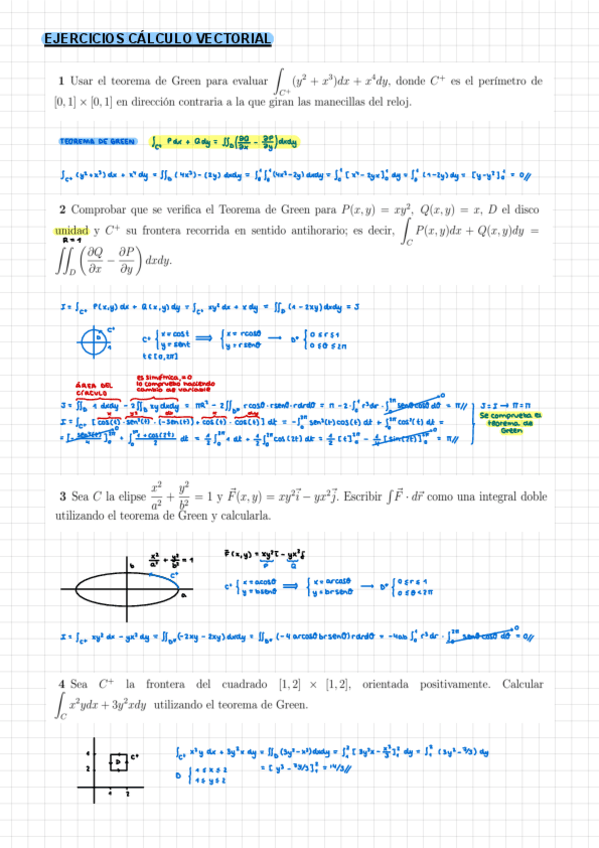 EJERCICIOS CÁLCULO VECTORIAL
1 Usar el teorema de Green para evaluar ∫_{C⁺} (y² + x³)dx + x⁴dy, donde C⁺ es el perímetro de
[0, 1] × [0, 1] en dirección contraria a la que giran las manecillas del reloj.
TEOREMA DE GREEN ∫_{C⁺} Pdx + Qdy = ∬_D (∂Q/∂x - ∂P/∂y) dxdy
∫_{C⁺} (y²+x³) dx + x⁴ dy = ∬_D (4x³) - (2y) dxdy = ∫₀¹ ∫₀¹ (4x³-2y) dxdy = ∫₀¹ [x⁴ - 2yx]₀¹ dy = ∫₀¹ (1-2y) dy = [y-y²]₀¹ = 0//
2 Comprobar que se verifica el Teorema de Green para P(x, y) = xy², Q(x, y) = x, D el disco
unidad y C⁺ su frontera recorrida en sentido antihorario; es decir, ∫_C P(x, y)dx + Q(x, y)dy =
R=1
∬_D (∂Q/∂x - ∂P/∂y) dxdy.
I = ∫_{C⁺} P(x,y) dx + Q(x,y) dy = ∫_{C⁺} xy² dx + x dy = ∬_D (1 - 2xy) dxdy = J
D C⁺
C⁺ { x = cos t ⟹ { x = r cosθ → D* { 0 ≤ r ≤ 1
y = sen t y = r senθ 0 ≤ θ ≤ 2π
t ∈ [0, 2π]
ÁREA DEL CÍRCULO
es simétrica, = 0
lo comprueba haciendo
cambio de variable
J = ∬_D 1 dxdy - 2∬_D xy dxdy = πR² - 2∬_{D*} r cosθ · r senθ · r dr dθ = π - 2 · ∫₀¹ r³ dr · ∫₀^{2π} senθ cosθ dθ = π//
J = I → π = π
I = ∫_{C⁺} [cos(t) · sen²(t) · (-sen(t)) + cos(t) · cos(t)] dt = -∫₀^{2π} sen³(t) cos(t) dt + ∫₀^{2π} cos²(t) dt =
Se comprueba el teorema de Green
= [-sen⁴(t)/4]₀^{2π} + ∫₀^{2π} (1 + cos(2t))/2 dt = ½ ∫₀^{2π} 1 dt + ½ ∫₀^{2π} cos(2t) dt = ½ [t]₀^{2π} - ¼ [sin(2t)]₀^{2π} = π//
3 Sea C la elipse x²/a² + y²/b² = 1 y F⃗(x, y) = xy²i⃗ − yx²j⃗. Escribir ∫ F⃗ · dr⃗ como una integral doble
utilizando el teorema de Green y calcularla.
x²/a² + y²/b² = 1
b
C⁺
a
F⃗(x,y) = xy² i⃗ - yx² j⃗
P Q
C⁺ { x = a cosθ ⟹ { x = a r cosθ → D* { 0 ≤ r ≤ 1
y = b senθ y = b r senθ 0 ≤ θ < 2π
I = ∫_{C⁺} xy² dx - yx² dy = ∬_{D*} (-2xy - 2xy) dxdy = ∬_{D*} (-4 a r cosθ b r senθ) r dr dθ = -4ab ∫₀¹ r³ dr · ∫₀^{2π} senθ cosθ dθ = 0//
4 Sea C⁺ la frontera del cuadrado [1, 2] × [1, 2], orientada positivamente. Calcular
∫_C x²ydx + 3y²xdy utilizando el teorema de Green.
D C⁺
1 2
∫_{C⁺} x²y dx + 3y²x dy = ∬_D (3y² - x²) dxdy = ∫₁² [3y²x - x³/3]₁² dy = ∫₁² (3y² - 7/3) dy
D { 1 ≤ x ≤ 2
1 ≤ y ≤ 2
= [y³ - 7y/3]₁² = 14/3//